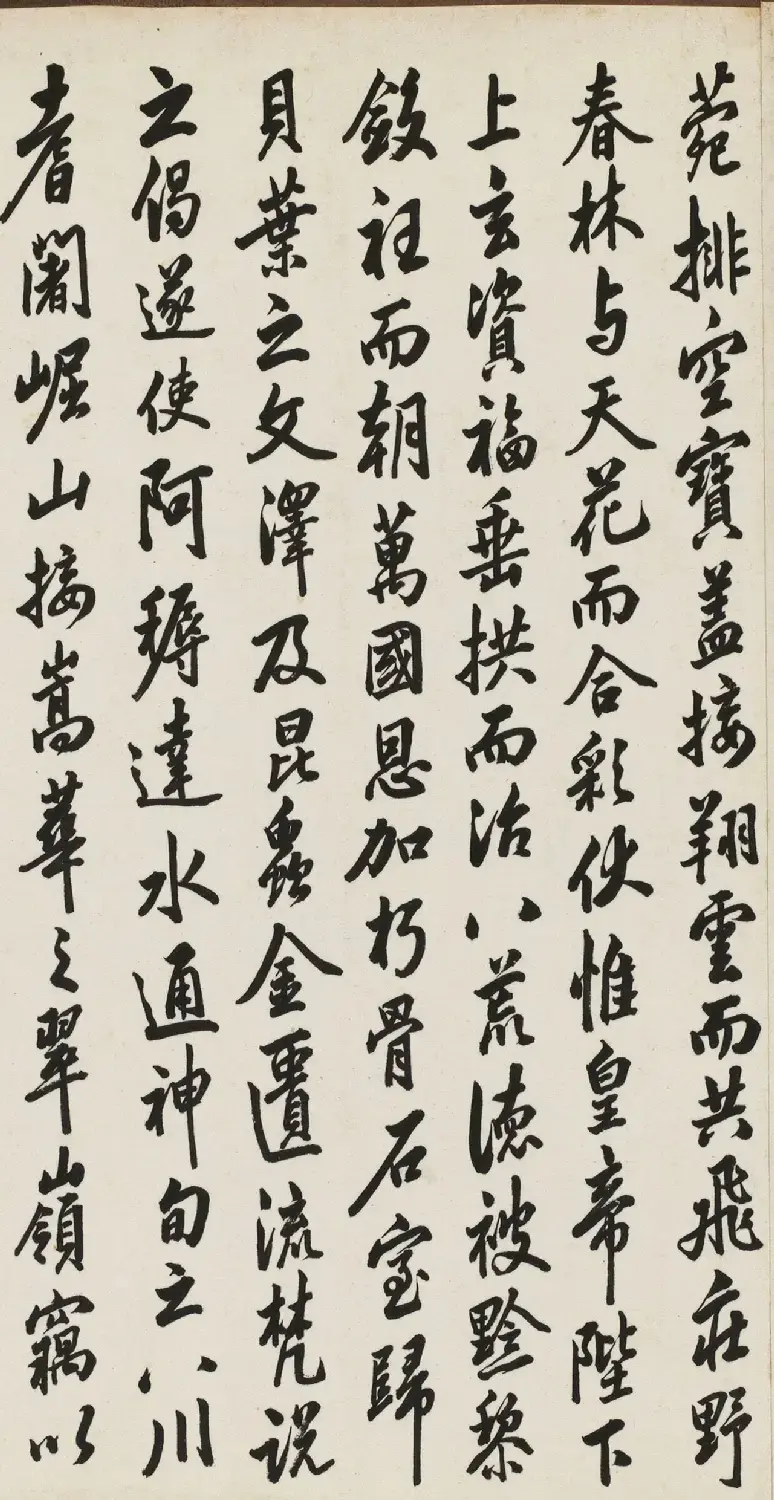 菀排空寶蓋接翔雲而共飛莊野
春林与天花而合彩伏惟皇帝陛下
上玄資福垂拱而治八荒德被黔黎
斂衽而朝萬國恩加朽骨石室歸
貝葉之文澤及昆蟲金匱流梵說
之偈遂使阿耨達水通神甸之八川
耆闍崛山接嵩華之翠嶺竊以